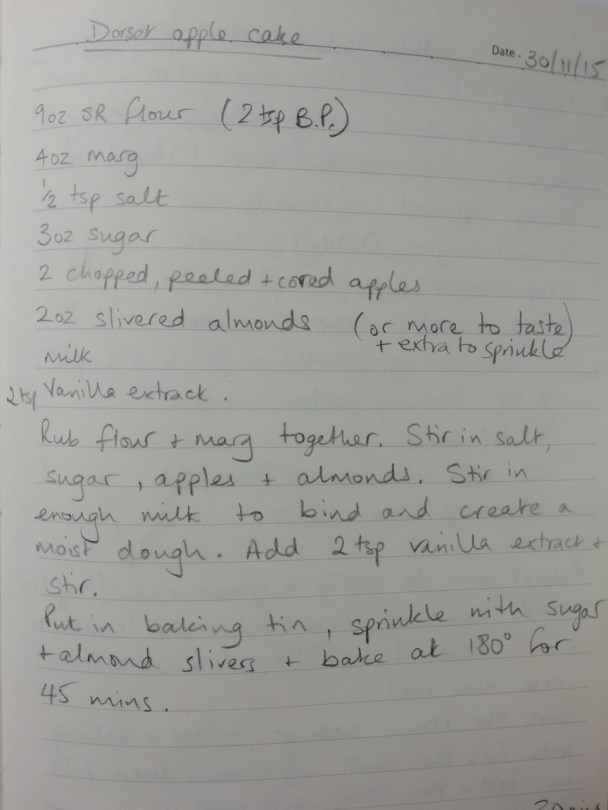 Dorset apple cake
Date. 30/11/15
9oz SR flour (2 tsp B.P.)
4oz marg
1/2 tsp salt
3oz sugar
2 chopped, peeled + cored apples
2oz slivered almonds (or more to taste)
+ extra to sprinkle
milk
2tsp Vanilla extract.
Rub flour + marg together. Stir in salt,
sugar, apples + almonds. Stir in
enough milk to bind and create a
moist dough. Add 2 tsp vanilla extract +
stir.
Put in baking tin, sprinkle with sugar
+ almond slivers + bake at 180° for
45 mins.